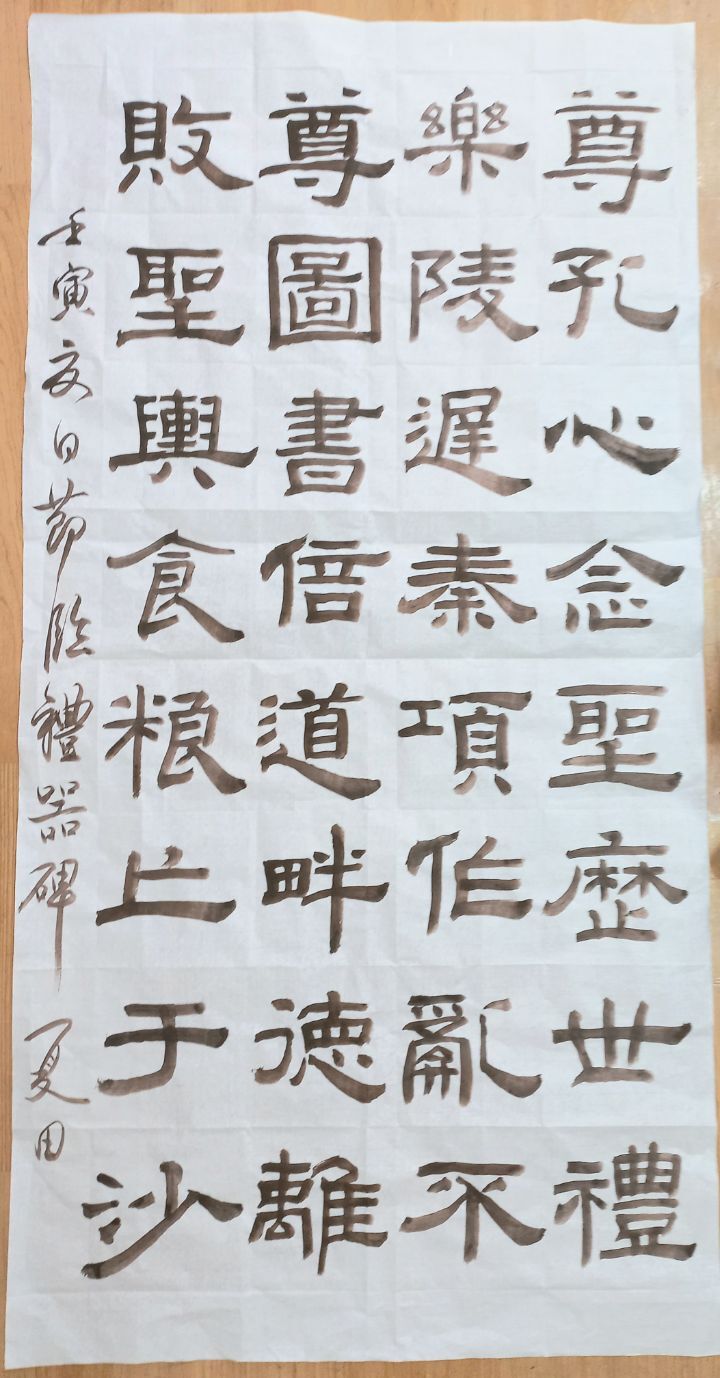 尊孔心念聖歷世禮
樂陵遲秦項作亂不
尊圖書倍道畔徳離
敗聖輿食粮亡于沙
壬寅日節臨禮器碑 夏田